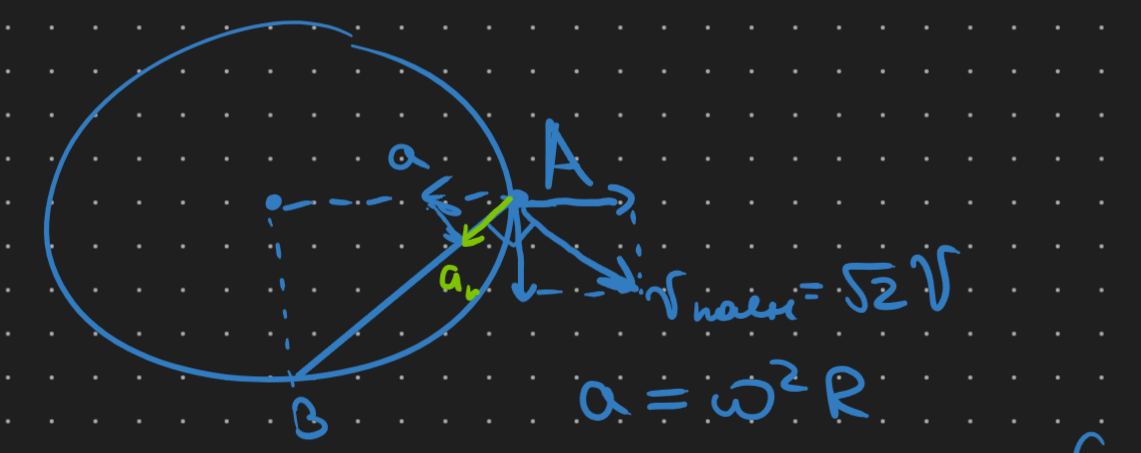 a
A
aₙ
V полн = √2 V
B
a = ω² R